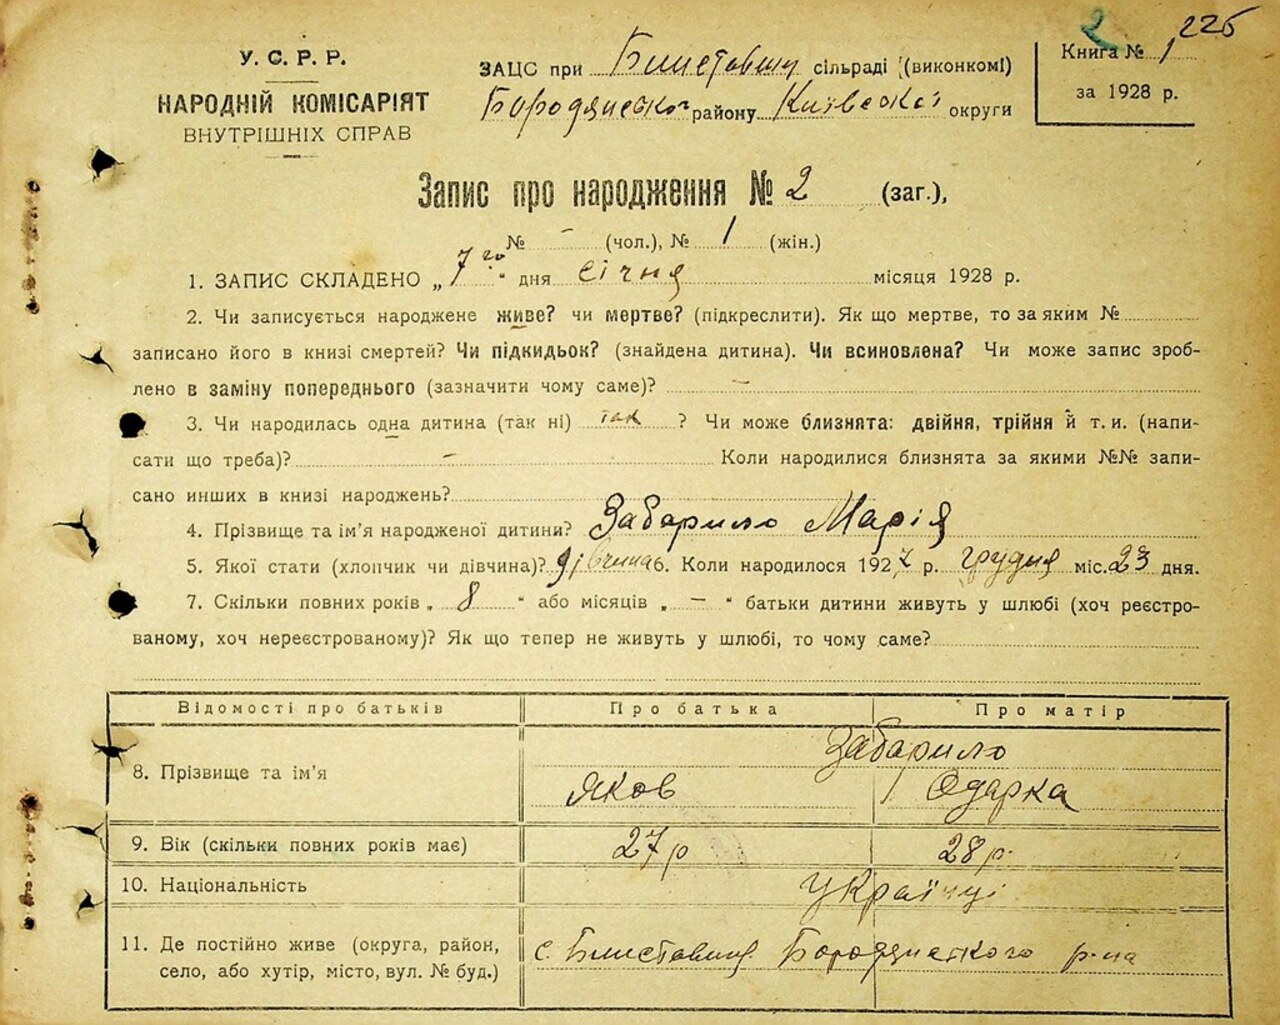 2 225
У. С. Р. Р.
НАРОДНІЙ КОМІСАРІЯТ
ВНУТРІШНІХ СПРАВ
ЗАЦС при Блиставиц сільраді (виконкомі)
Бородянсько го району Київської округи
Книга № 1
за 1928 р.
Запис про народження № 2 (заг.),
№ - (чол.), № 1 (жін.)
1. ЗАПИС СКЛАДЕНО „ 7го “ дня січня місяця 1928 р.
2. Чи записується народжене живе? чи мертве? (підкреслити). Як що мертве, то за яким №
записано його в книзі смертей? Чи підкидьок? (знайдена дитина). Чи всиновлена? Чи може запис зроб-
лено в заміну попереднього (зазначити чому саме)? —
3. Чи народилась одна дитина (так ні) так ? Чи може близнята: двійня, трійня й т. и. (напи-
сати що треба)? - Коли народилися близнята за якими №№ запи-
сано инших в книзі народжень?
4. Прізвище та ім’я народженої дитини? Забарило Марія
5. Якої стати (хлопчик чи дівчина)? дівчина 6. Коли народилося 1927 р. грудня міс. 23 дня.
7. Скільки повних років „ 8 “ або місяців „ — “ батьки дитини живуть у шлюбі (хоч реєстро-
ваному, хоч нереєстрованому)? Як що тепер не живуть у шлюбі, то чому саме?
Відомості про батьків Про батька Про матір
Забарило
8. Прізвище та ім’я Яков Одарка
9. Вік (скільки повних років має) 27 р 28 р.
10. Національність Українці
11. Де постійно живе (округа, район, с. Блиставиця Бородянского р-на
село, або хутір, місто, вул. № буд.)